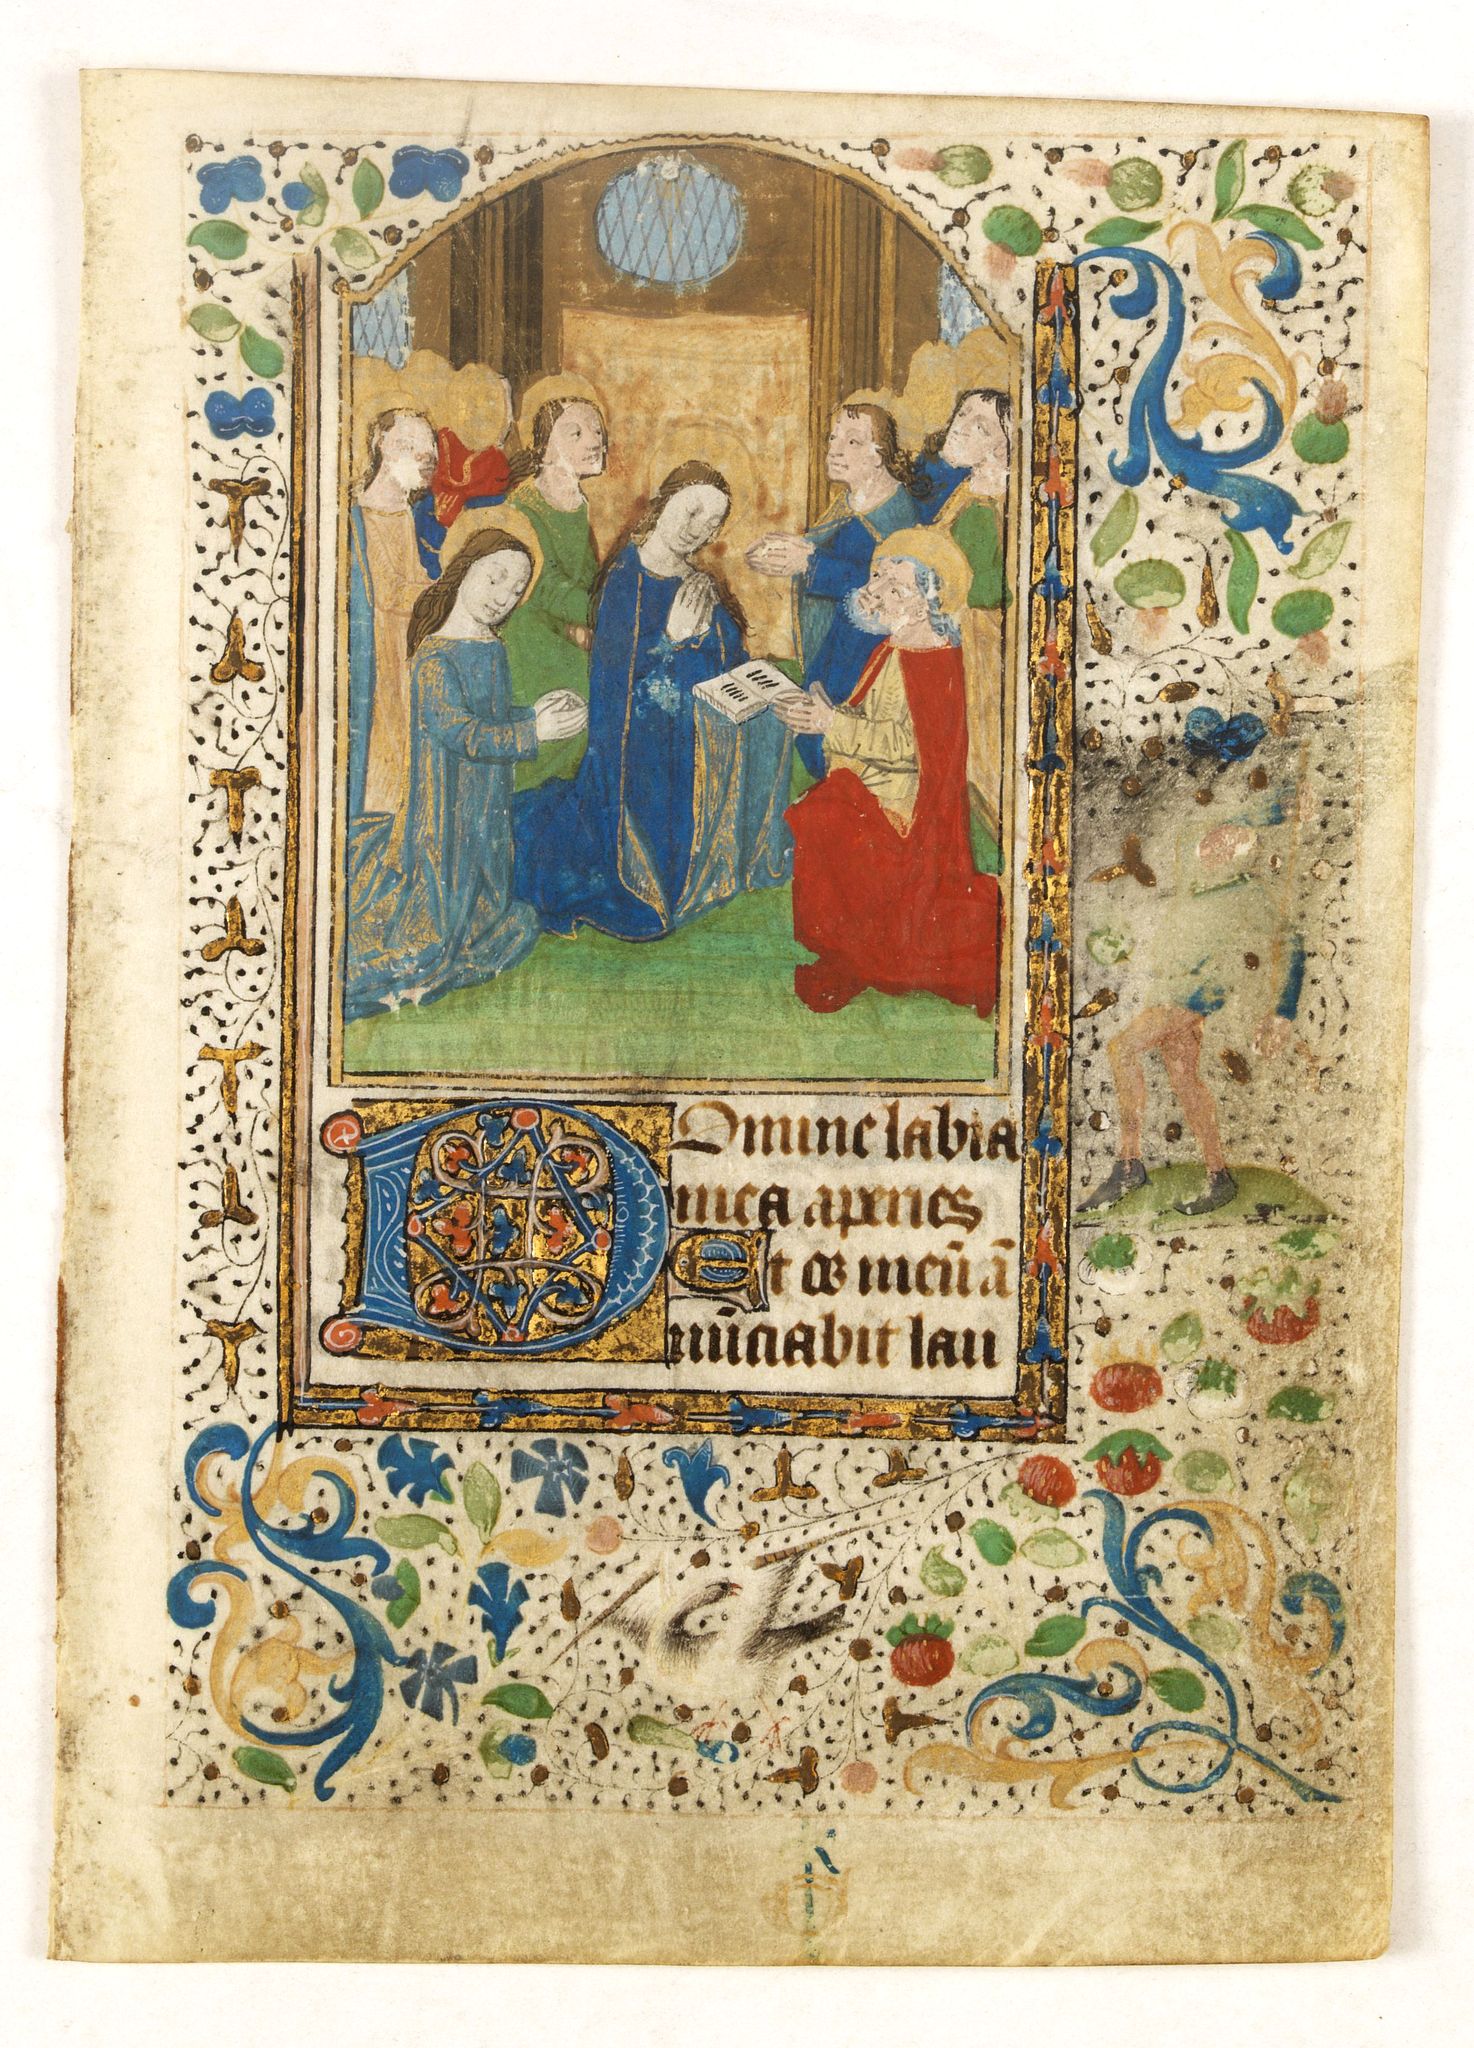 DOmine labia
mea aperies
Et os meũ ã
nũciabit lau